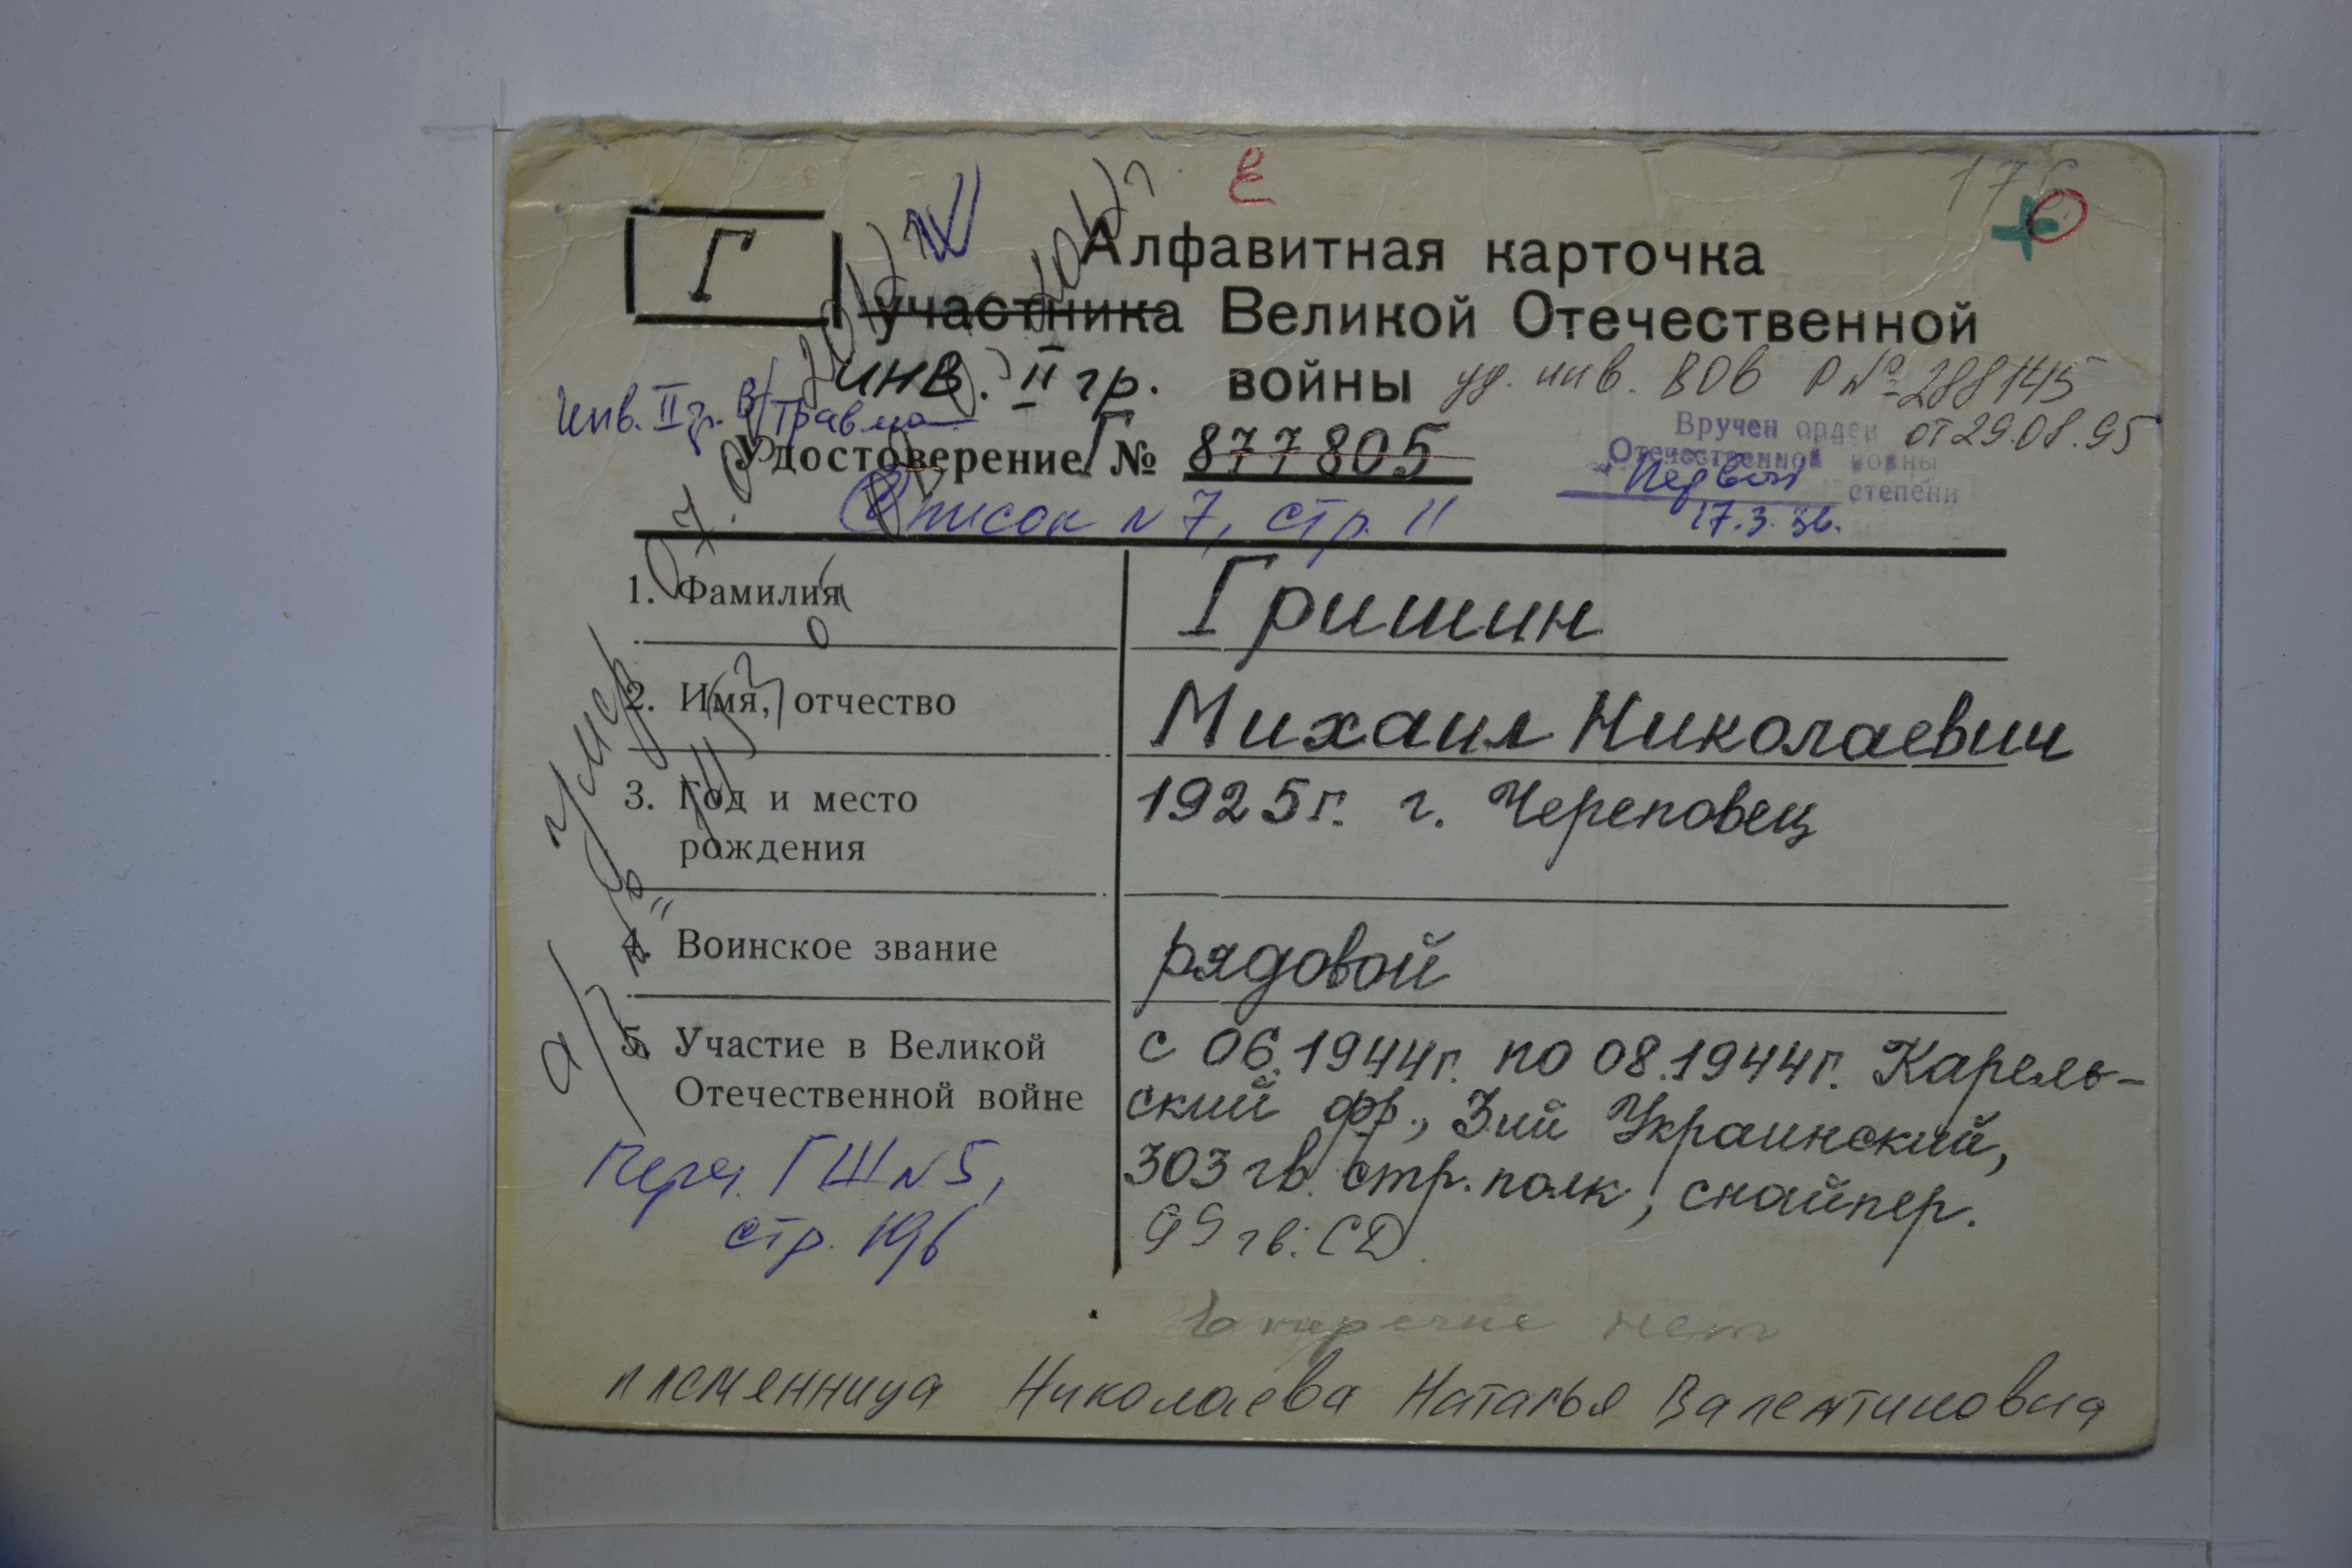 176
Г
Алфавитная карточка
участника Великой Отечественной
инв. II гр. войны уд. инв. ВОВ Р № 288145
от 29.08.95
Инв. II гр. в/травма
Удостоверение Г № 877805
Вручен орден
Отечественной войны
"Первой степени
17.3.86.
Список N 7, стр. 11
1. Фамилия
Гришин
2. Имя, отчество
Михаил Николаевич
3. Год и место
рождения
1925г. г. Череповец
4. Воинское звание
рядовой
5. Участие в Великой
Отечественной войне
с 06.1944г. по 08.1944г. Карель-
ский фр., 3ий Украинский,
303 гв. стр. полк, снайпер.
99 гв. СД.
умер
а/
Переч. ГШ N 5,
стр. 196
В перечне нет
племянница Николаева Наталья Валентиновна